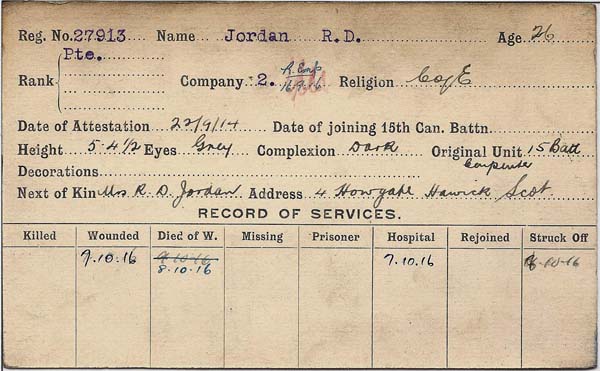 Reg. No. 27913 Name Jordan R.D. Age 26
Pte.
Rank Company 2. 16/9/16 Religion C of E
Date of Attestation 22/9/14 Date of joining 15th Can. Battn.
Height 5-4½ Eyes Grey Complexion Dark Original Unit 15 Batt
Decorations Carpenter
Next of Kin Mrs R. D. Jordan Address 4 Howgate Hawick Scot.
RECORD OF SERVICES.
Killed Wounded Died of W. Missing Prisoner Hospital Rejoined Struck Off
7.10.16 9.10.16 7.10.16 8-10-16
8.10.16